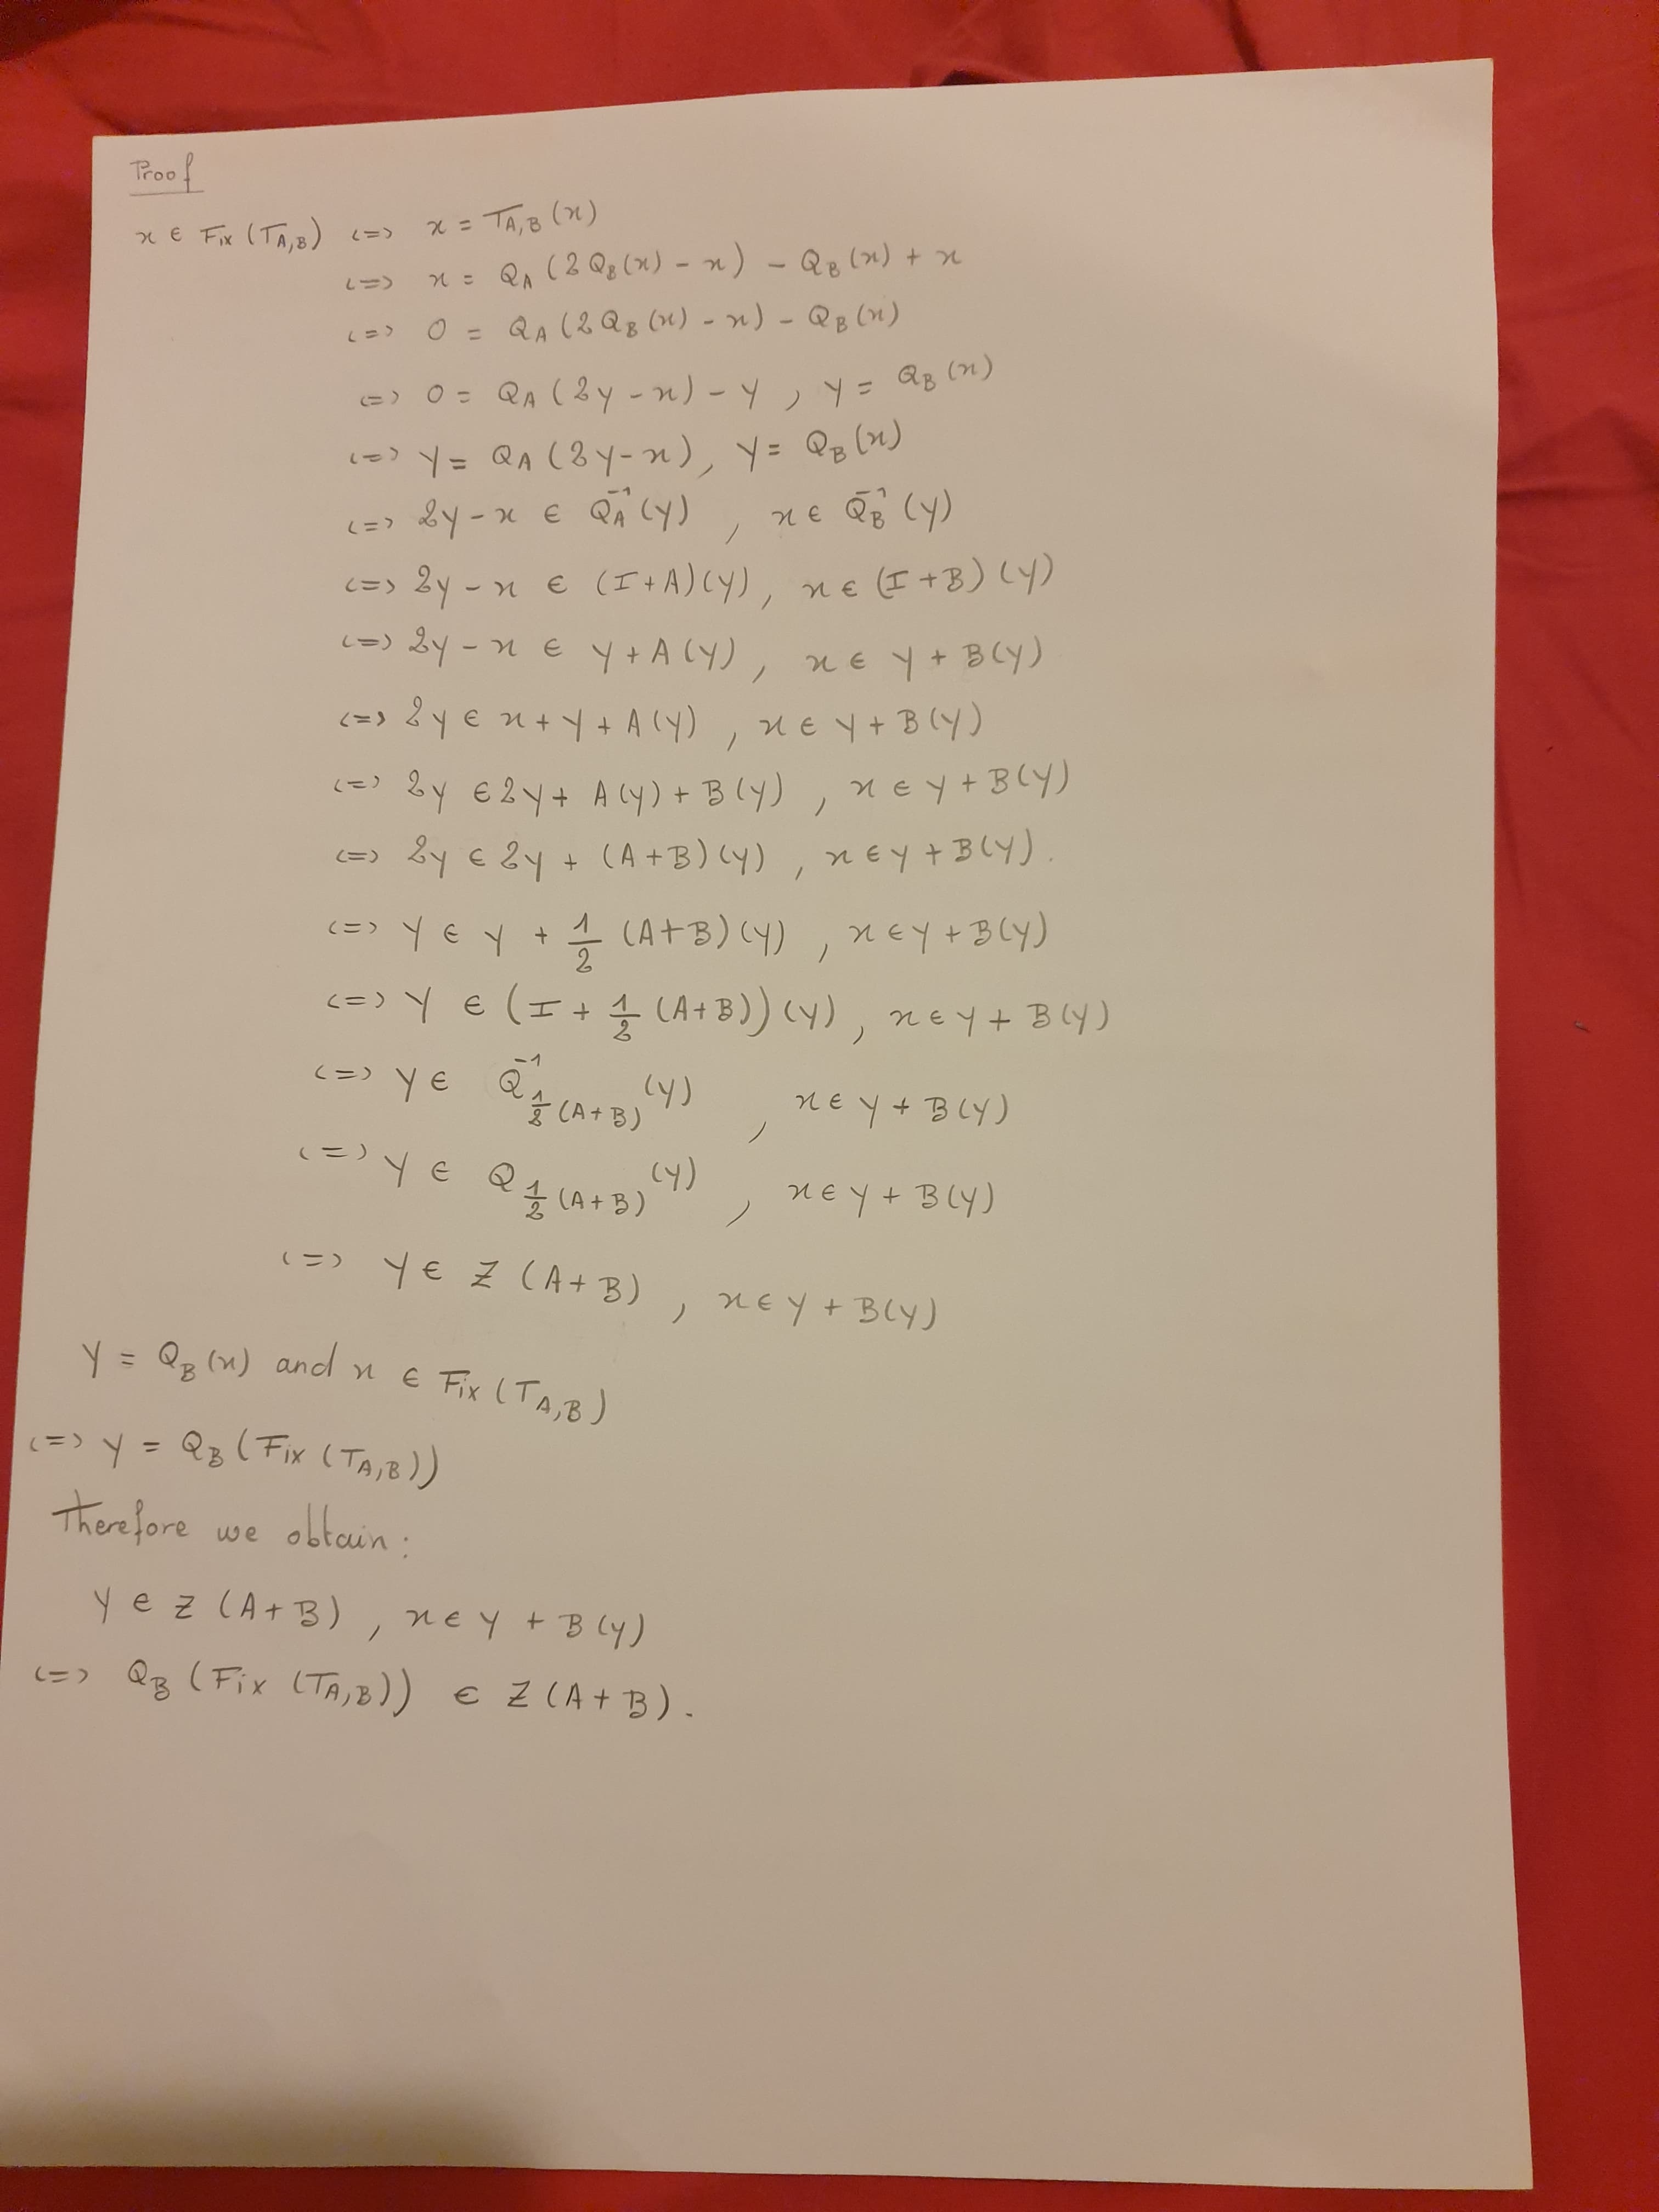 Proof
x ∈ Fix (T_{A,B}) <=> x = T_{A,B} (x)
<=> x = Q_A (2 Q_B (x) - x) - Q_B (x) + x
<=> 0 = Q_A (2 Q_B (x) - x) - Q_B (x)
<=> 0 = Q_A (2y - x) - y , y = Q_B (x)
<=> y = Q_A (2y - x), y = Q_B (x)
<=> 2y - x ∈ Q_A^{-1} (y) , x ∈ Q_B^{-1} (y)
<=> 2y - x ∈ (I + A) (y), x ∈ (I + B) (y)
<=> 2y - x ∈ y + A (y) , x ∈ y + B(y)
<=> 2y ∈ x + y + A (y) , x ∈ y + B(y)
<=> 2y ∈ 2y + A(y) + B(y) , x ∈ y + B(y)
<=> 2y ∈ 2y + (A+B)(y) , x ∈ y + B(y).
<=> y ∈ y + \frac{1}{2} (A+B)(y) , x ∈ y + B(y)
<=> y ∈ (I + \frac{1}{2} (A+B)) (y) , x ∈ y + B(y)
<=> y ∈ Q^{-1}_{\frac{1}{2}(A+B)} (y) , x ∈ y + B(y)
<=> y ∈ Q_{\frac{1}{2}(A+B)} (y) , x ∈ y + B(y)
<=> y ∈ Z (A+B) , x ∈ y + B(y)
y = Q_B (x) and x ∈ Fix (T_{A,B})
<=> y = Q_B (Fix (T_{A,B}))
Therefore we obtain :
y ∈ Z (A+B) , x ∈ y + B(y)
<=> Q_B (Fix (T_{A,B})) ∈ Z (A+B).